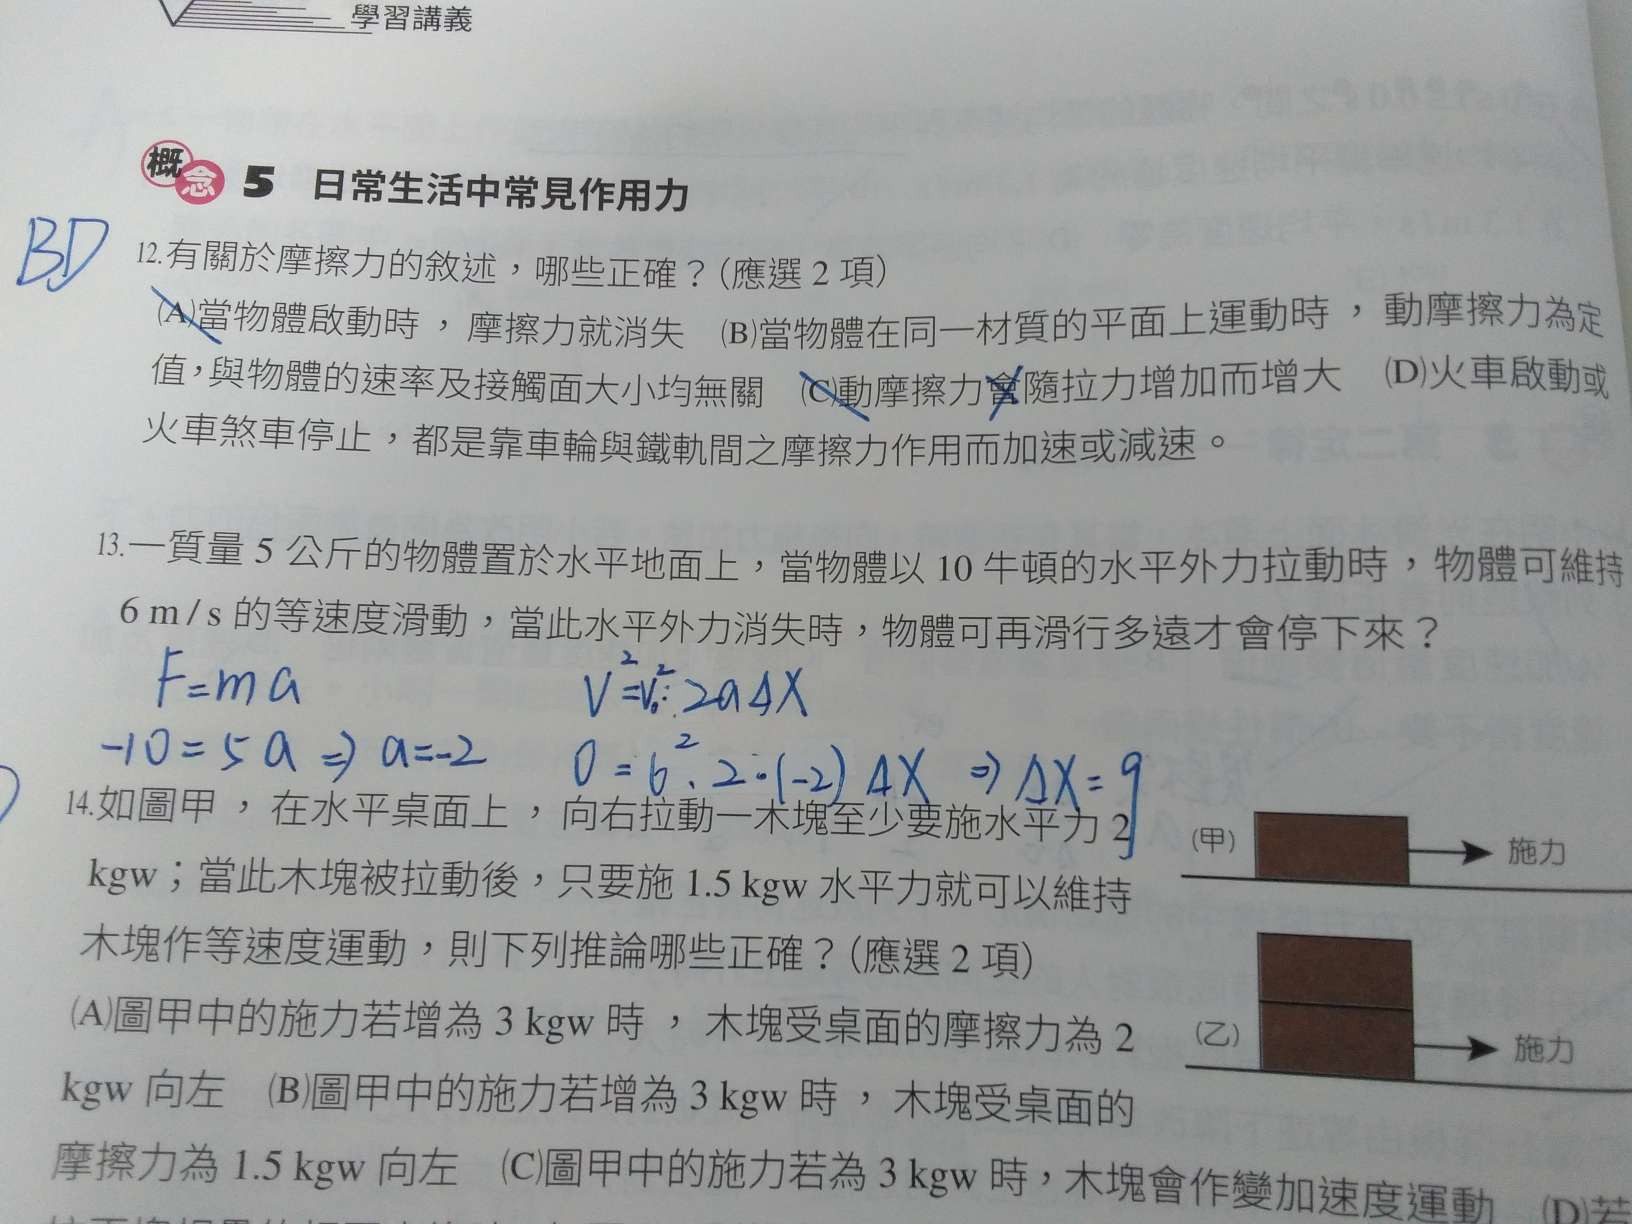 學習講義
概念 5 日常生活中常見作用力
BD
12.有關於摩擦力的敘述，哪些正確？(應選 2 項)
(A)當物體啟動時，摩擦力就消失 (B)當物體在同一材質的平面上運動時，動摩擦力為定
值，與物體的速率及接觸面大小均無關 (C)動摩擦力會隨拉力增加而增大 (D)火車啟動或
火車煞車停止，都是靠車輪與鐵軌間之摩擦力作用而加速或減速。
13.一質量 5 公斤的物體置於水平地面上，當物體以 10 牛頓的水平外力拉動時，物體可維持
6 m/s 的等速度滑動，當此水平外力消失時，物體可再滑行多遠才會停下來？
F=ma
V²=V₀²: 2aΔX
-10=5a⇒a=-2
0=6². 2·(-2)ΔX ⇒ ΔX=9
14.如圖甲，在水平桌面上，向右拉動一木塊至少要施水平力 2
kgw；當此木塊被拉動後，只要施 1.5 kgw 水平力就可以維持
木塊作等速度運動，則下列推論哪些正確？(應選 2 項)
(A)圖甲中的施力若增為 3 kgw 時，木塊受桌面的摩擦力為 2
kgw 向左 (B)圖甲中的施力若增為 3 kgw 時，木塊受桌面的
摩擦力為 1.5 kgw 向左 (C)圖甲中的施力若為 3 kgw 時，木塊會作變加速度運動 (D)若
(甲)
施力
(乙)
施力